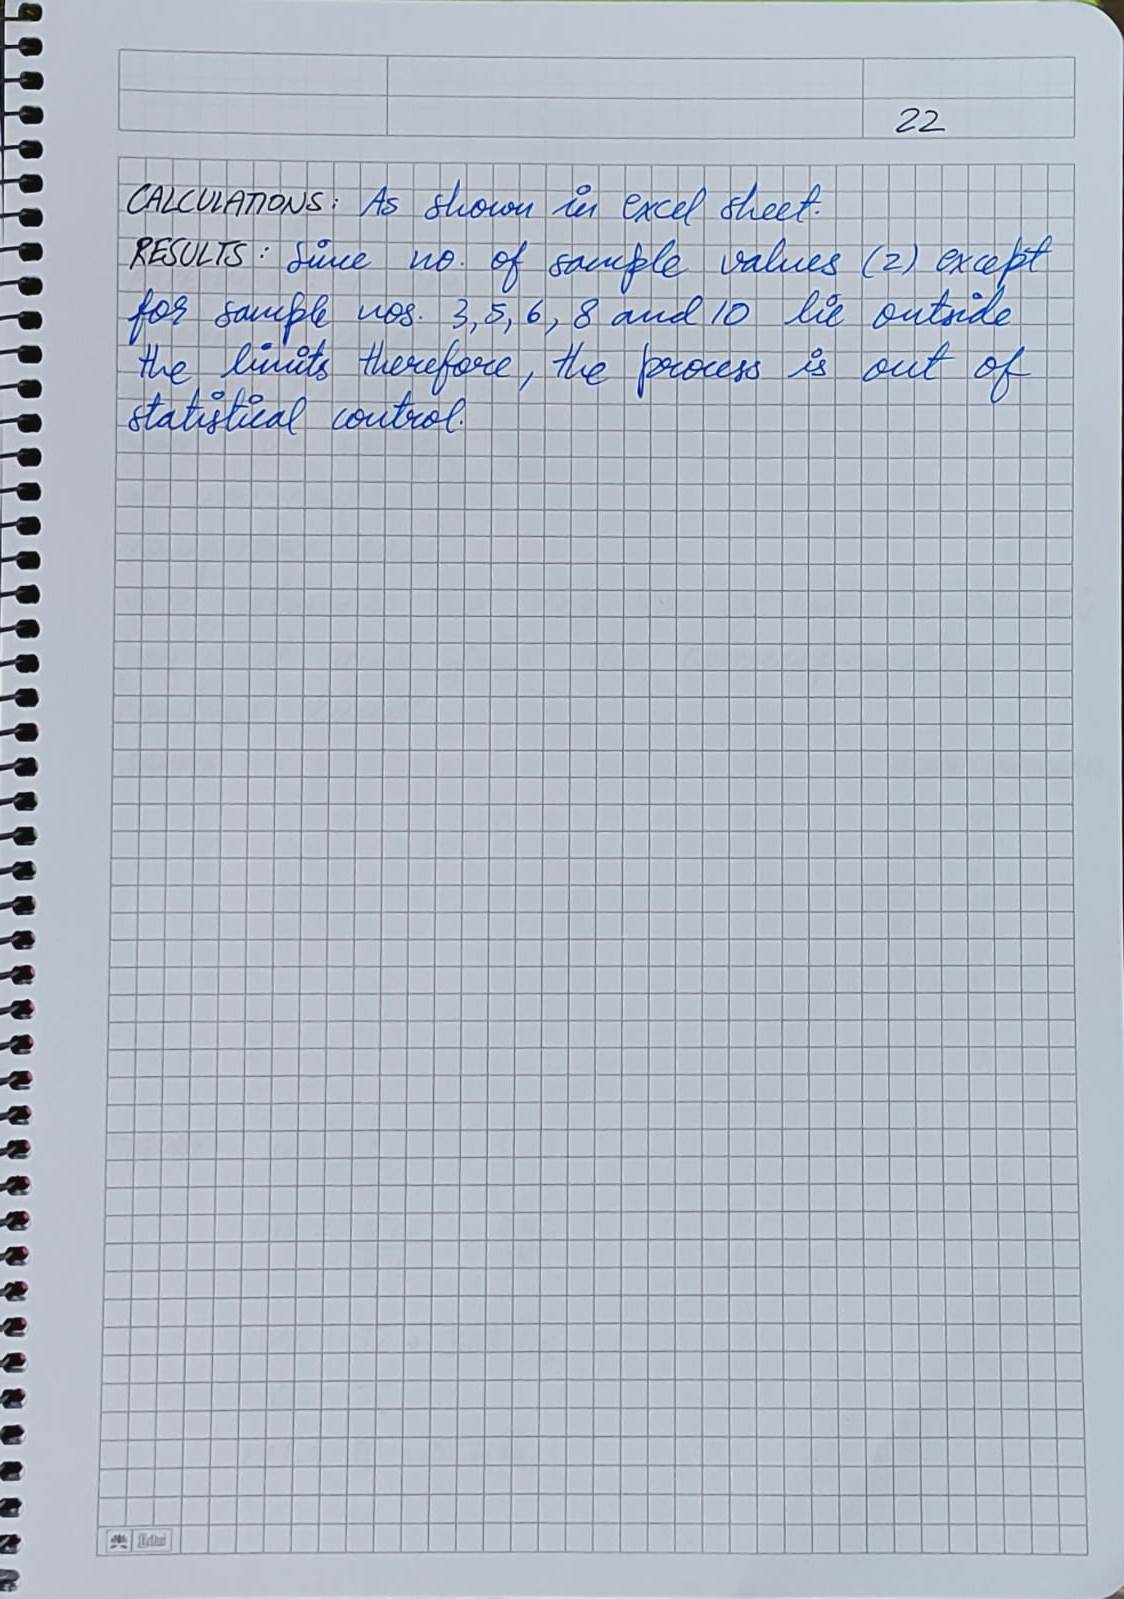 22
CALCULATIONS: As shown in excel sheet.
RESULTS: Since no. of sample values (2) except
for sample nos. 3, 5, 6, 8 and 10 lie outside
the limits therefore, the process is out of
statistical control.